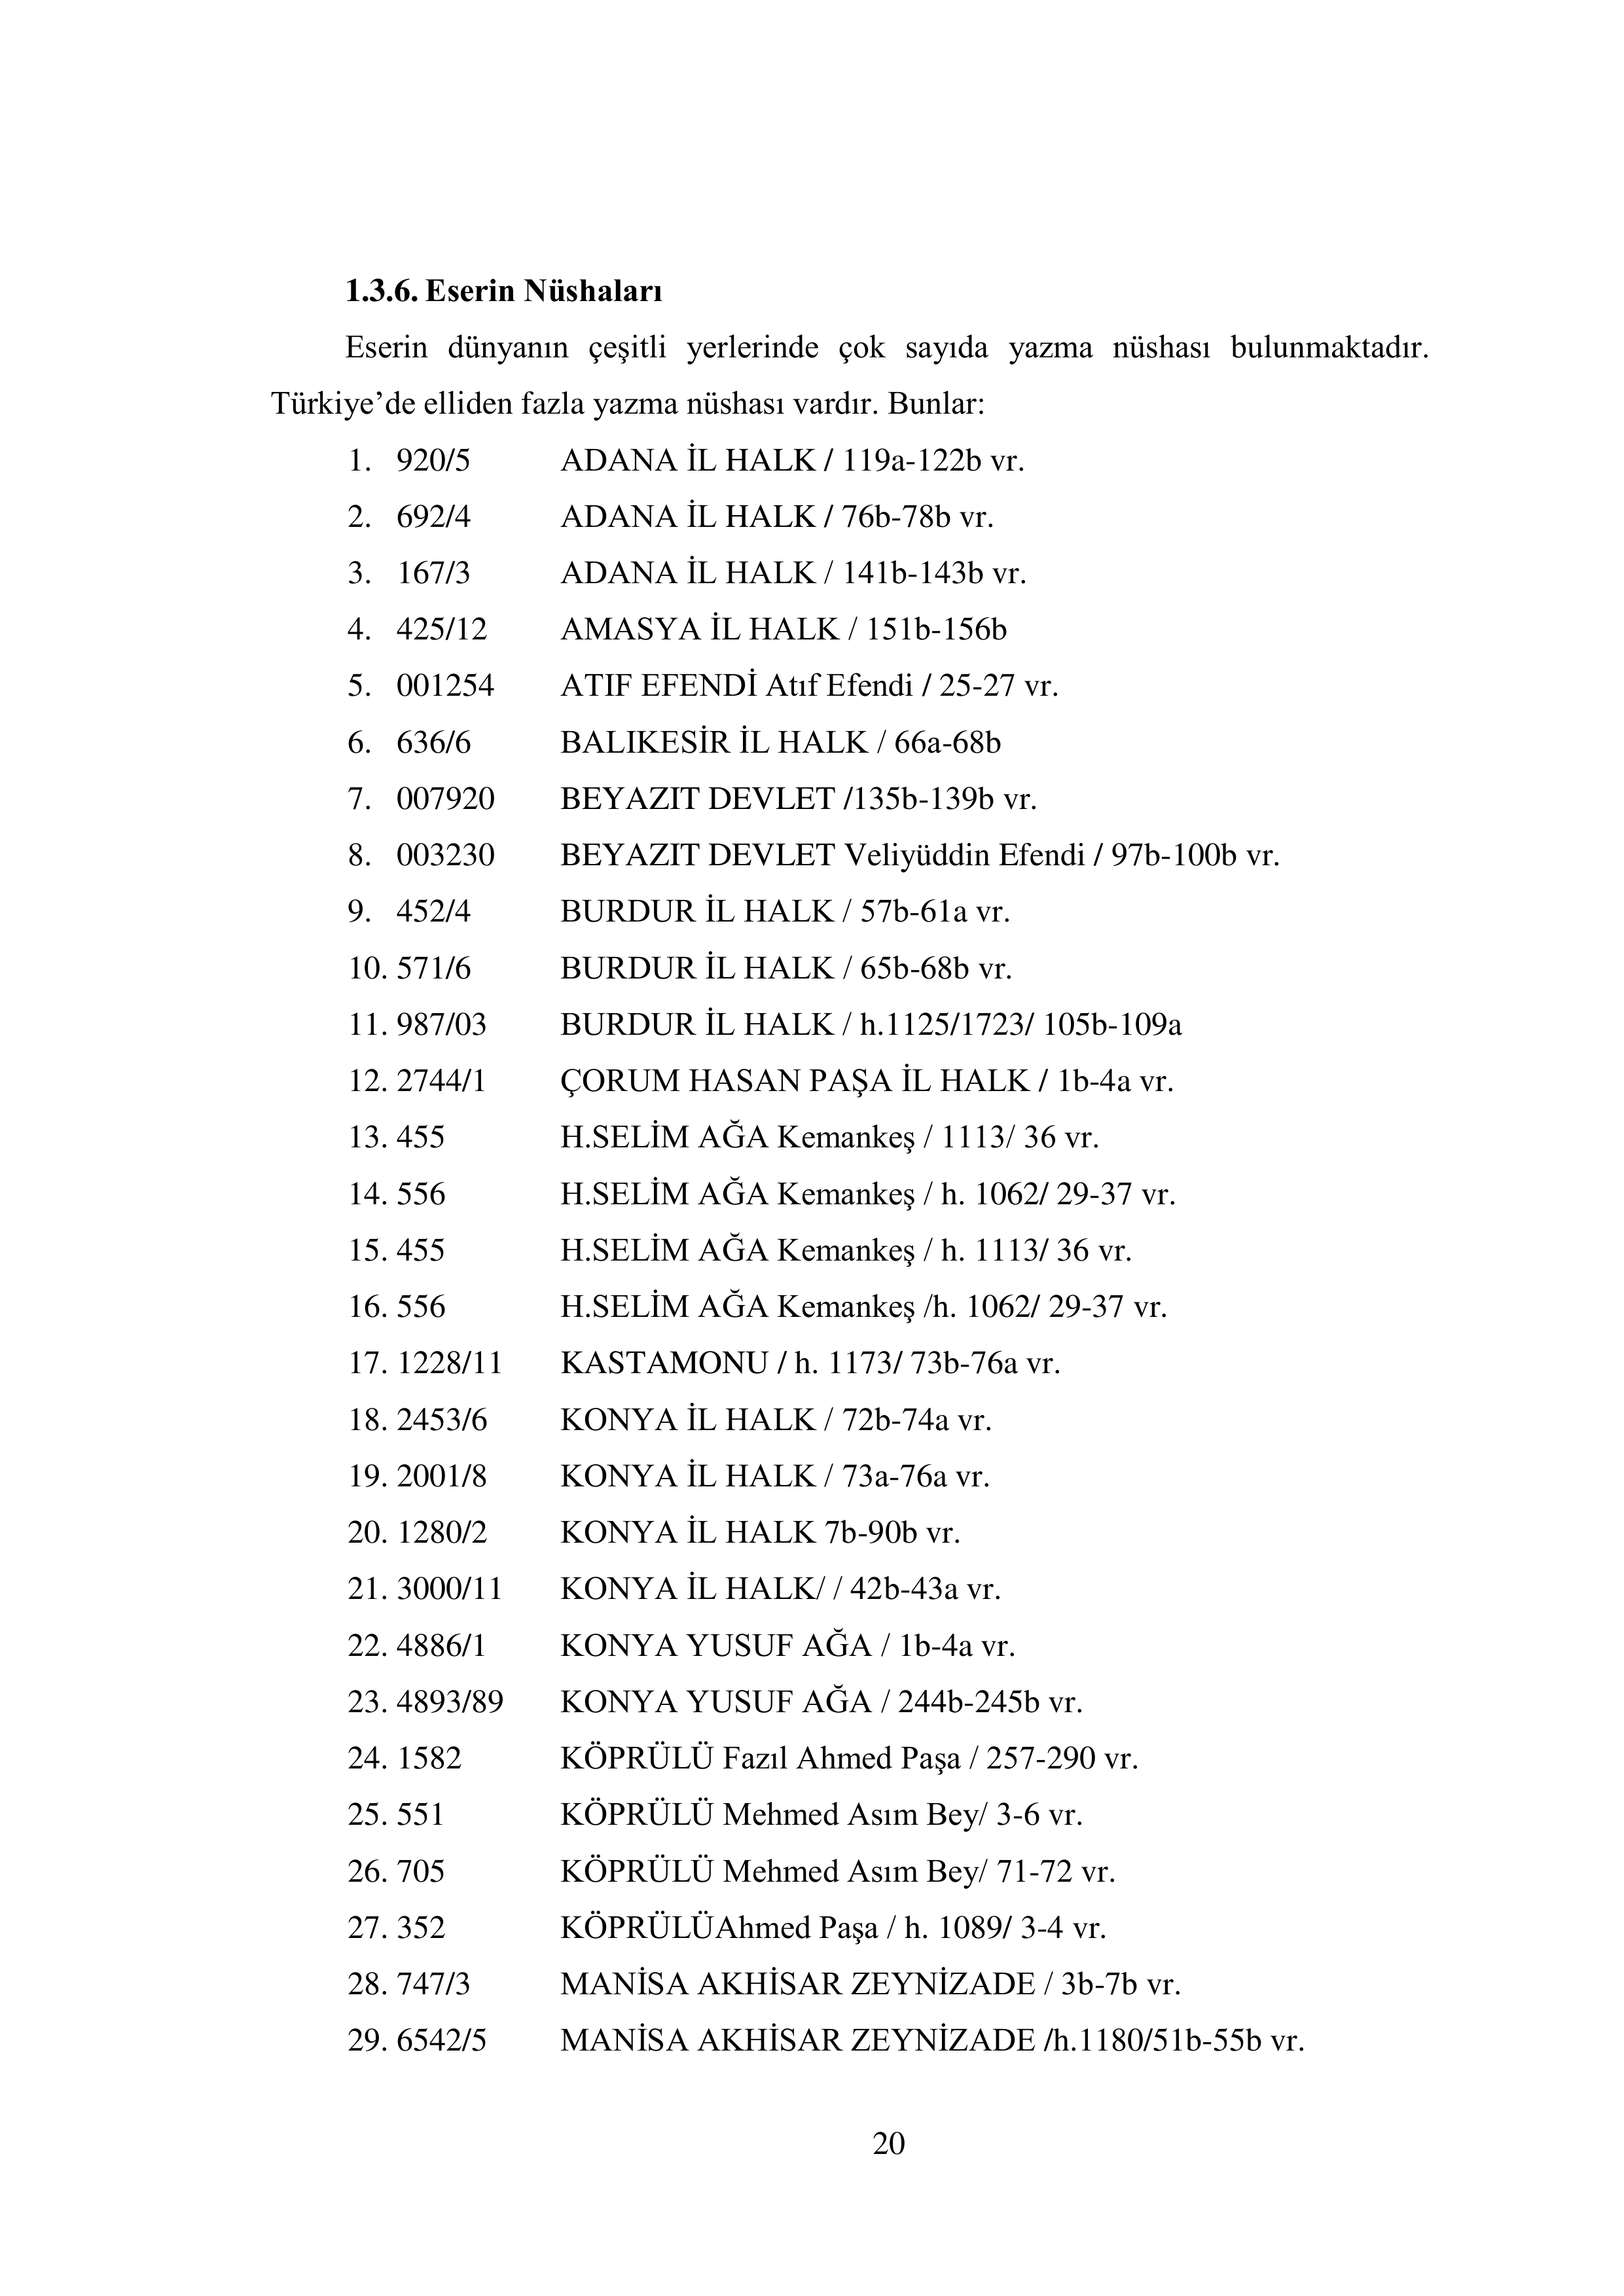 1.3.6. Eserin Nüshaları
Eserin dünyanın çeşitli yerlerinde çok sayıda yazma nüshası bulunmaktadır.
Türkiye’de elliden fazla yazma nüshası vardır. Bunlar:
1. 920/5 ADANA İL HALK / 119a-122b vr.
2. 692/4 ADANA İL HALK / 76b-78b vr.
3. 167/3 ADANA İL HALK / 141b-143b vr.
4. 425/12 AMASYA İL HALK / 151b-156b
5. 001254 ATIF EFENDİ Atıf Efendi / 25-27 vr.
6. 636/6 BALIKESİR İL HALK / 66a-68b
7. 007920 BEYAZIT DEVLET /135b-139b vr.
8. 003230 BEYAZIT DEVLET Veliyüddin Efendi / 97b-100b vr.
9. 452/4 BURDUR İL HALK / 57b-61a vr.
10. 571/6 BURDUR İL HALK / 65b-68b vr.
11. 987/03 BURDUR İL HALK / h.1125/1723/ 105b-109a
12. 2744/1 ÇORUM HASAN PAŞA İL HALK / 1b-4a vr.
13. 455 H.SELİM AĞA Kemankeş / 1113/ 36 vr.
14. 556 H.SELİM AĞA Kemankeş / h. 1062/ 29-37 vr.
15. 455 H.SELİM AĞA Kemankeş / h. 1113/ 36 vr.
16. 556 H.SELİM AĞA Kemankeş /h. 1062/ 29-37 vr.
17. 1228/11 KASTAMONU / h. 1173/ 73b-76a vr.
18. 2453/6 KONYA İL HALK / 72b-74a vr.
19. 2001/8 KONYA İL HALK / 73a-76a vr.
20. 1280/2 KONYA İL HALK 7b-90b vr.
21. 3000/11 KONYA İL HALK/ / 42b-43a vr.
22. 4886/1 KONYA YUSUF AĞA / 1b-4a vr.
23. 4893/89 KONYA YUSUF AĞA / 244b-245b vr.
24. 1582 KÖPRÜLÜ Fazıl Ahmed Paşa / 257-290 vr.
25. 551 KÖPRÜLÜ Mehmed Asım Bey/ 3-6 vr.
26. 705 KÖPRÜLÜ Mehmed Asım Bey/ 71-72 vr.
27. 352 KÖPRÜLÜAhmed Paşa / h. 1089/ 3-4 vr.
28. 747/3 MANİSA AKHİSAR ZEYNİZADE / 3b-7b vr.
29. 6542/5 MANİSA AKHİSAR ZEYNİZADE /h.1180/51b-55b vr.
20